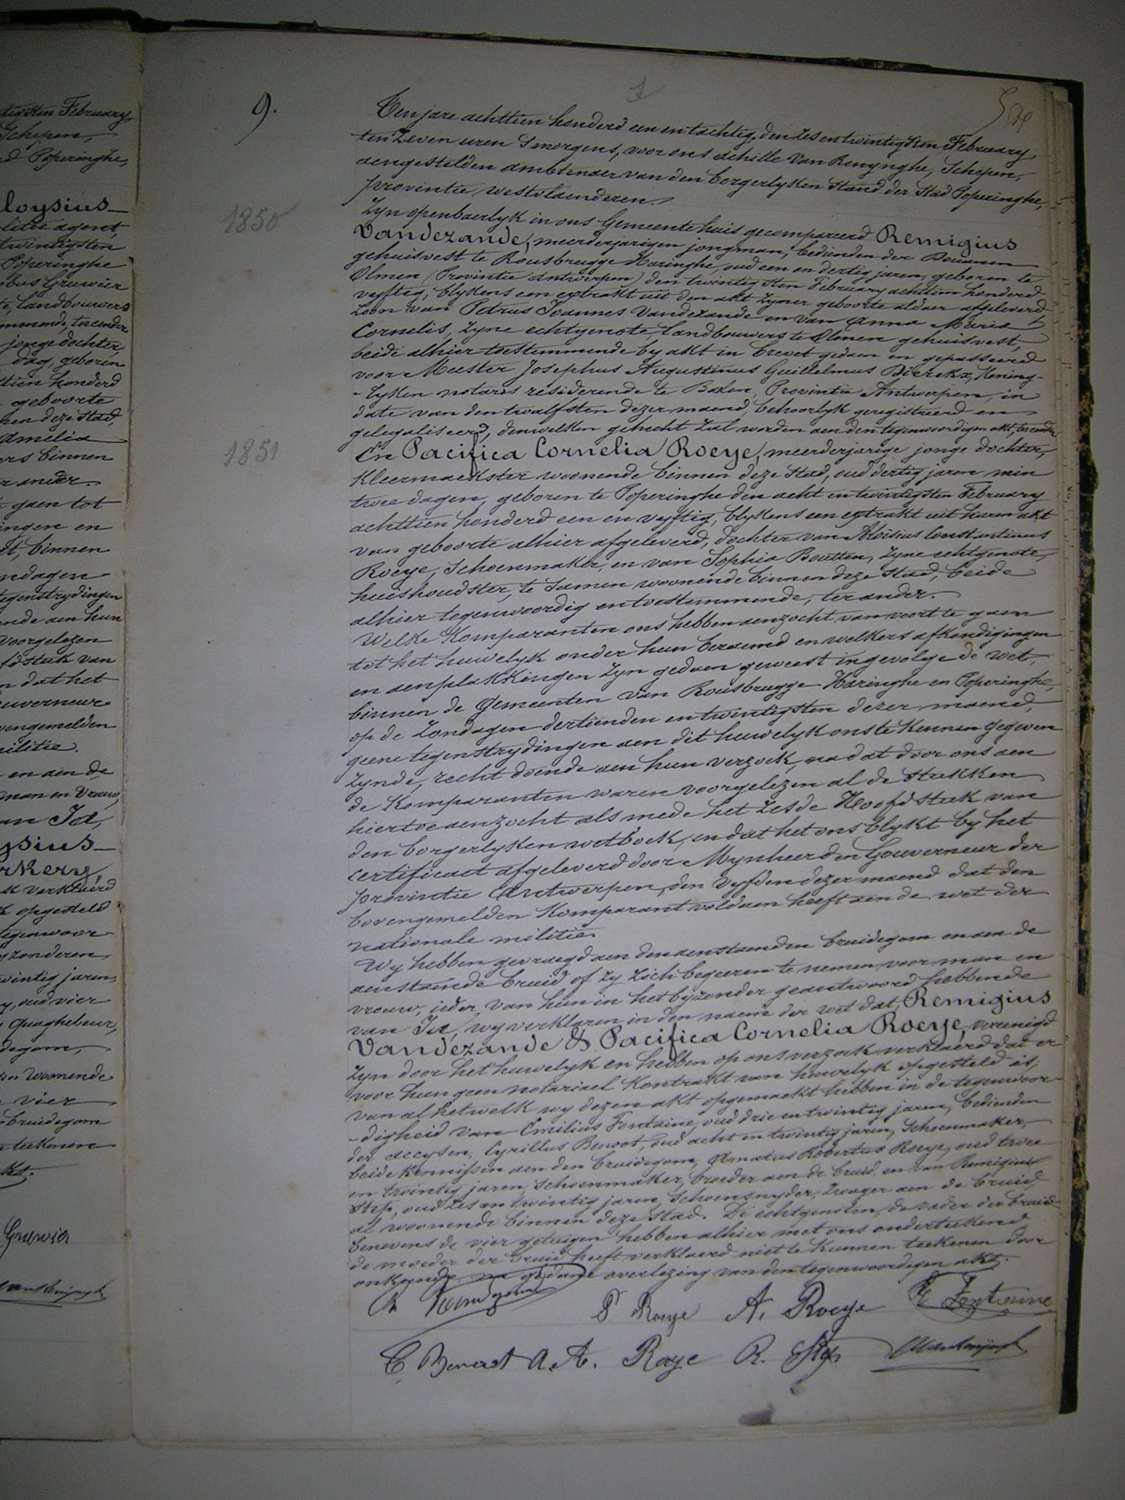 9.
1850
1851
Ten jare achttien honderd een en tachtig, den zes en twintigsten February
ten zeven uren 's morgens, voor ons Achille Van Renynghe, Schepen,
aengestelden ambtenaer van den borgerlyken stand der Stad Poperinghe,
provintie westvlaenderen.
Zyn openbaerlyk in ons Gemeentehuis gecompareerd Remigius
Vandezande, meerderjarigen jongman, bedienden der Douanen
gehuisvest te Rousbrugge Haringhe, oud een en dertig jaren, geboren te
Olmen (Provintie Antwerpen) den twintigsten February achttien honderd
vyftig, blykens een extrakt uit den akt zyner geboorte aldaer afgeleverd
Zoon van Petrus Joannes Vandezande en van Anna Maria
Cornelis, zyne echtgenote, landbouwers te Olmen gehuisvest,
beide alhier toestemmende by akt in brevet gedaen en gepasseerd
voor Meester Josephus Augustinus Guillelmus Dierckx, Koning-
-lyken notaris residerende te Balen, Provintie Antwerpen, in
date van den twalfsten dezer maend, behoorlyk geregistreerd en
gelegaliseerd, denwelken gehecht zal worden aen den tegenwoordigen akt, ter eender
En Pacifica Cornelia Roeye, meerderjarige jonge dochter,
kleermaekster woonende binnen deze Stad, oud dertig jaren min
twee dagen, geboren te Poperinghe den acht en twintigsten February
achttien honderd een en vyftig, blykens een extrakt uit haren akt
van geboorte alhier afgeleverd, dochter van Aloisius Constantinus
Roeye, Schoenmaker, en van Sophia Boutten, zyne echtgenote,
huishoudster, te samen woonende binnen deze Stad, beide
alhier tegenwoordig en toestemmende, ter ander.
Welke Komparanten ons hebben aenzocht van voort te gaen
tot het huwelyk onder hun beraemd en welkers afkondigingen
en aenplakkingen zyn gedaen geweest ingevolge de wet,
binnen de Gemeenten van Rousbrugge Haringhe en Poperinghe,
op de Zondagen dertienden en twintigsten dezer maend,
geene tegenstrydingen aen dit huwelyk ons te kennen gegeven
zynde, recht doende aen hun verzoek, na dat door ons aen
de Komparanten waren voorgelezen al de stukken
hiertoe aenzocht als mede het zesde Hoofdstuk van
den borgerlyken wetboek, en dat het ons blykt by het
certificaet afgeleverd door Mynheer den Gouverneur der
provintie Antwerpen, den vyfden dezer maend dat den
bovengemelden Komparant voldaen heeft aen de wet der
nationale militie.
Wy hebben gevraegd aen den aenstaenden bruidegom en aen de
aenstaende bruid of zy zich begeeren te nemen voor man en
vrouw, ieder van hun in het byzonder geantwoord hebbende
van Ja, wy verklaren in den naem der wet dat Remigius
Vandezande & Pacifica Cornelia Roeye, vereenigd
zyn door het huwelyk en hebben op ons verzoek verklaerd dat er
voor hun geen notariael kontrakt van huwelyk opgesteld is,
van al hetwelk wy dezen akt opgemaekt hebben in de tegenwoor-
-digheid van Emilius Fontaine, oud drie en twintig jaren, bedienden
der accysen, Cyrillus Benoot, oud acht en twintig jaren, Schoenmaker,
beide kennissen aen den bruidegom, Amatus Robertus Roeye, oud twee
en twintig jaren, Schoenmaker, broeder aen de bruid, en van Remigius
Step, oud zes en twintig jaren, Schoensnyder, zwager aen de bruid,
al woonende binnen deze Stad. De echtgenoten, de vader der bruid
benevens de vier getuigen hebben alhier met ons onderteekend
de moeder der bruid heeft verklaerd niet te kunnen teekenen door
onkunde na gedane overlezing van den tegenwoordigen akt.
P Roeye A. Roeye E Fontaine
C Benoot A. A. Roeye R. Step